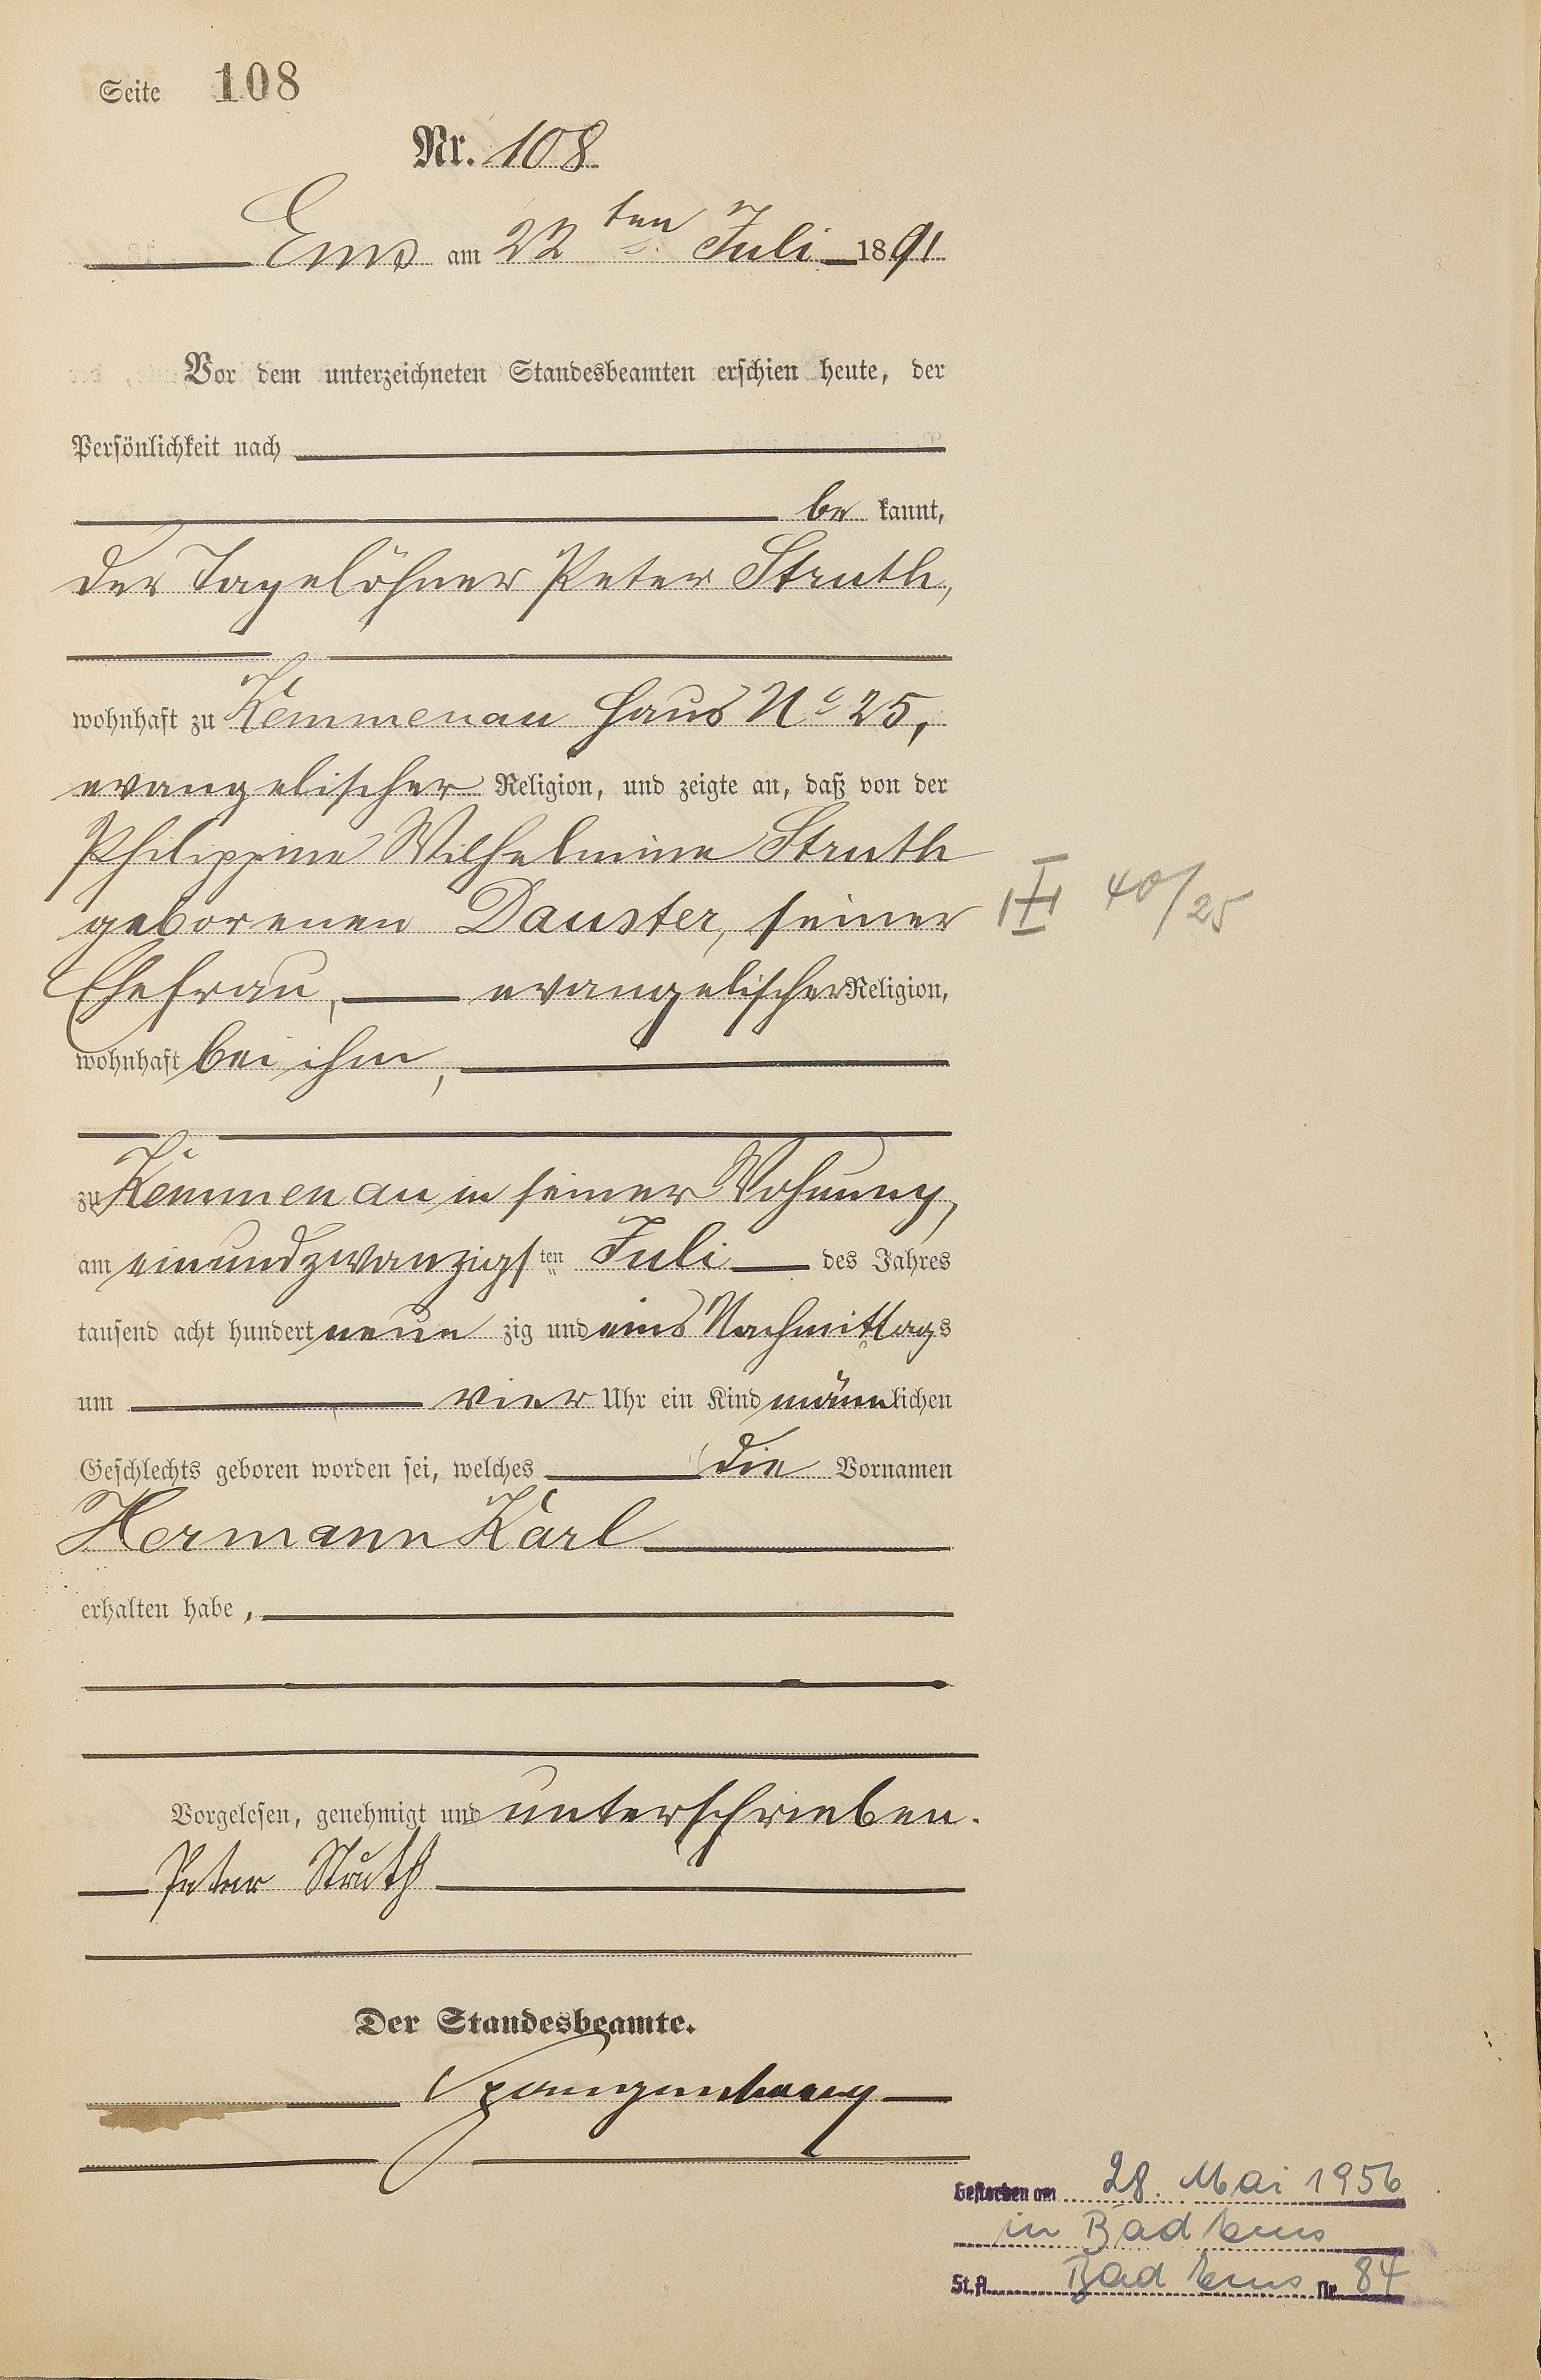 Seite 108
Nr. 108
Ems am 22ten Juli 1891
Vor dem unterzeichneten Standesbeamten erschien heute, der
Persönlichkeit nach
be kannt,
der Tagelöhner Peter Struth,
wohnhaft zu Kemmenau Haus No 25,
evangelischer Religion, und zeigte an, daß von der
Philippine Wilhelmine Struth
geborenen Dauster, seiner
III 40/25
Ehefrau, evangelischer Religion,
wohnhaft bei ihm,
zu Kemmenau in seiner Wohnung,
am einundzwanzigsten Juli des Jahres
tausend acht hundert neun zig und eins Nachmittags
um vier Uhr ein Kind männlichen
Geschlechts geboren worden sei, welches die Vornamen
Hermann Karl
erhalten habe,
Vorgelesen, genehmigt und unterschrieben.
Peter Struth
Der Standesbeamte.
Spangenberg
Gestorben am 28. Mai 1956
in Bad Ems
St.A. Bad Ems Nr. 84